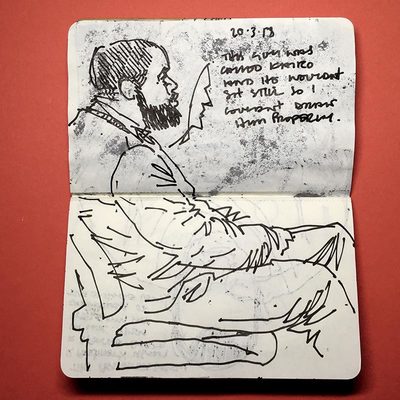 20.3.18
THIS GUY WAS
CALLED KHIRO
AND HE WOULDNT
SIT STILL SO I
COULDN'T DRAW
HIM PROPERLY.